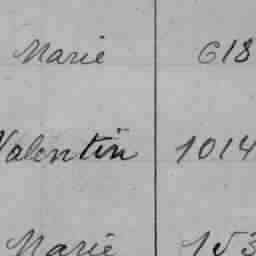 Marie 618
Valentin 1014
Marie 153